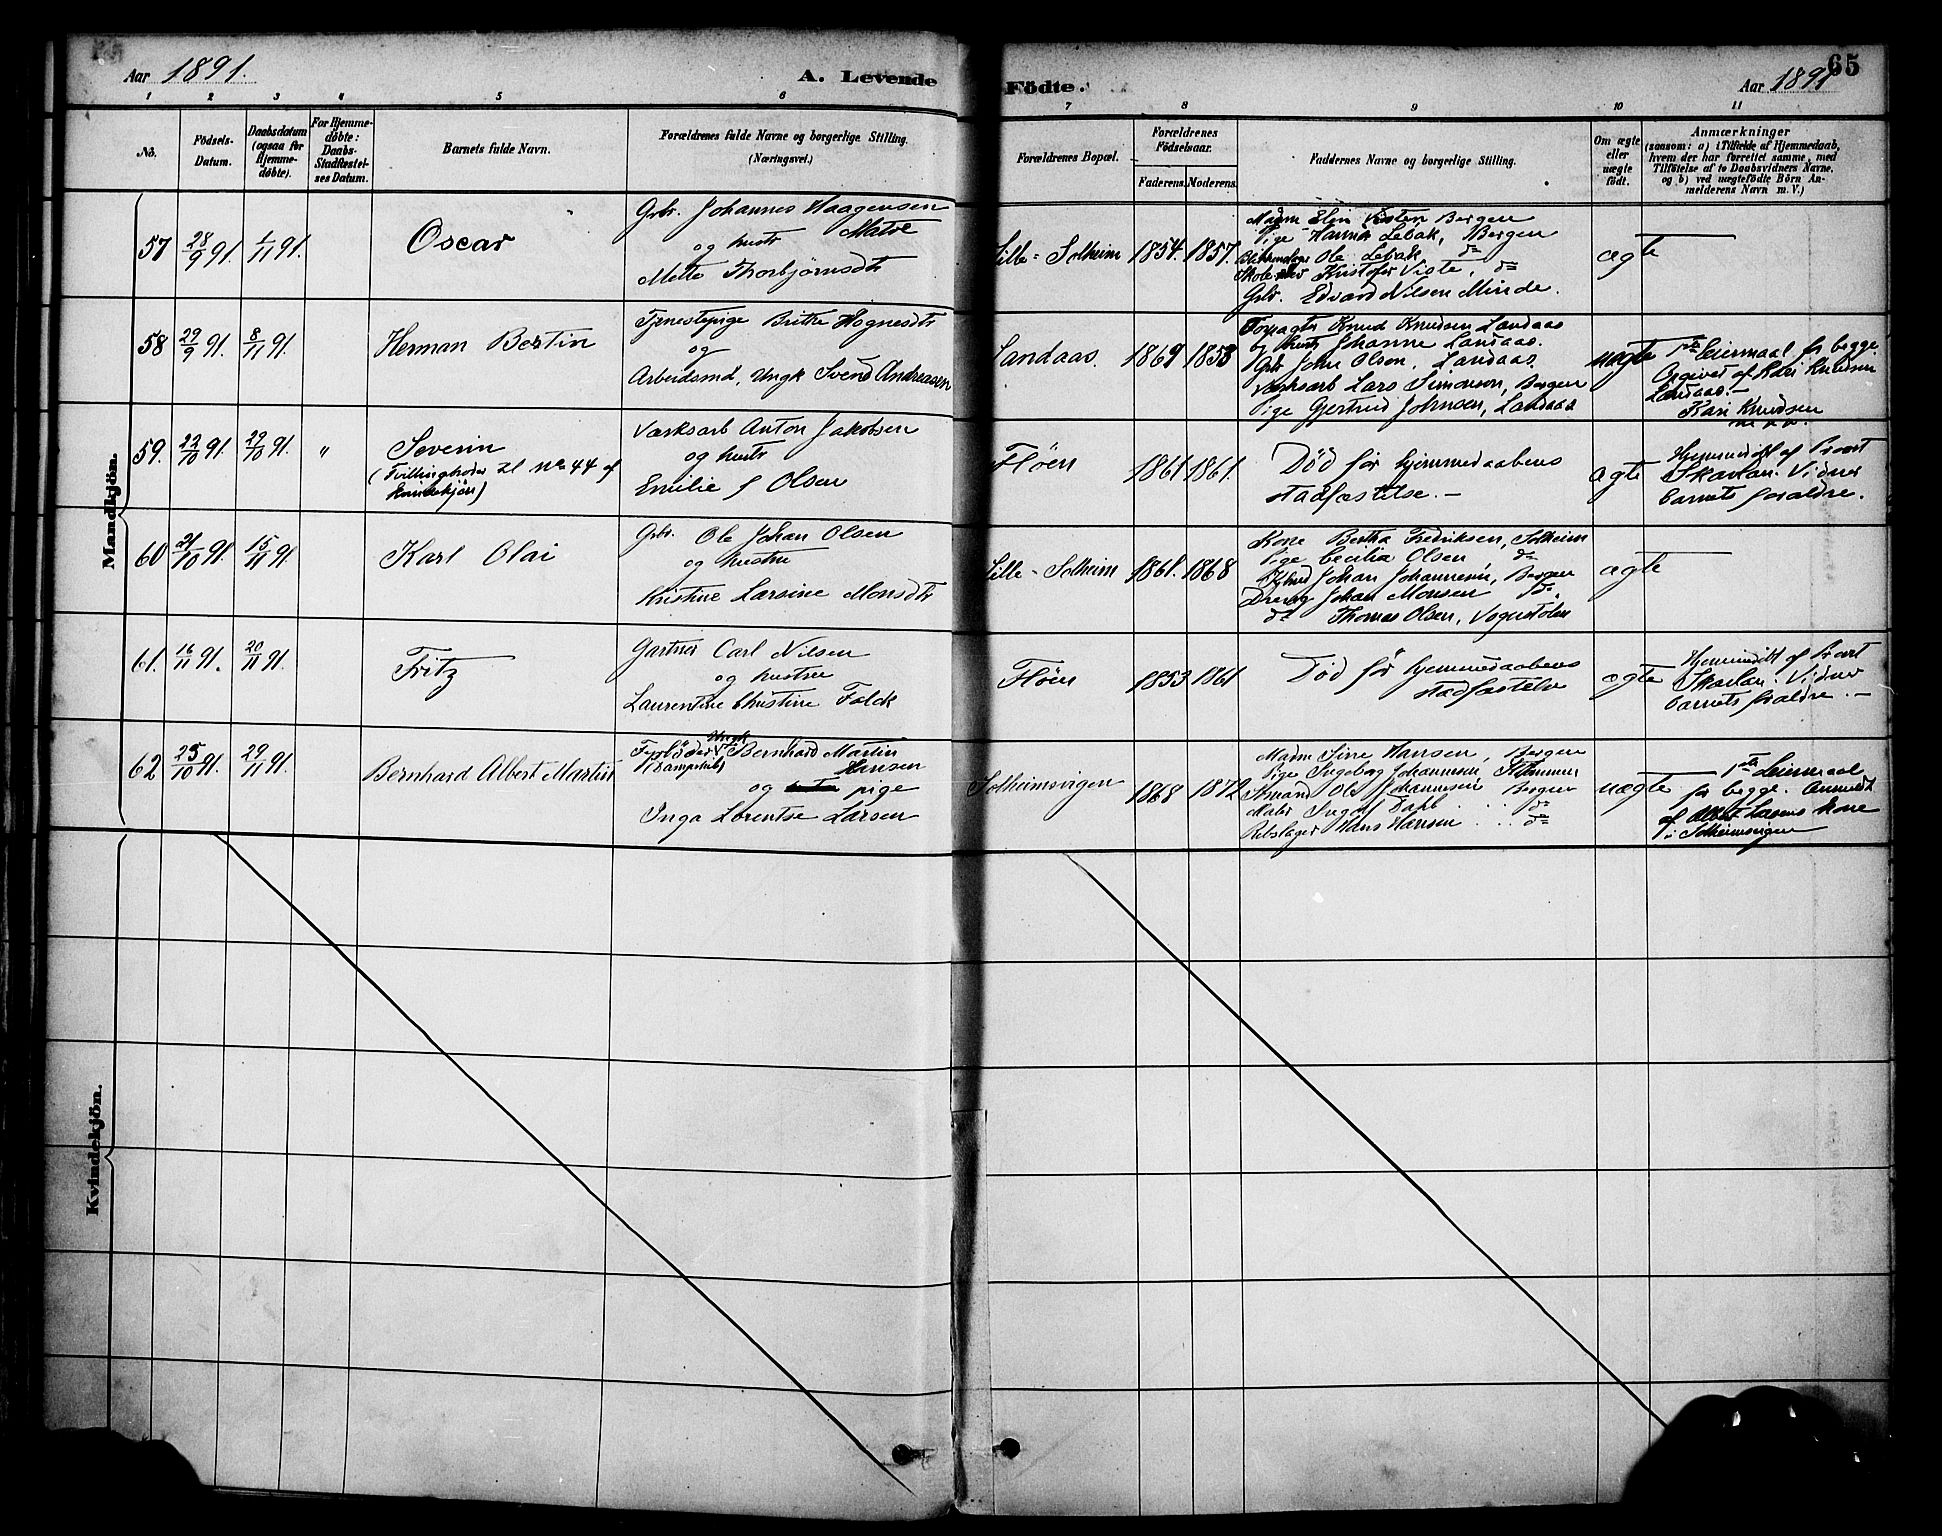 Aar 1891. A. Levende Födte. Aar 1891 65
1 2 3 4 5 6 7 8 9 10 11
No.
Födsels-Datum.
Daabsdatum (ogsaa for Hjemme-döbte).
For Hjemme-döbte: Daabs-Stadfæstel-ses Datum.
Barnets fulde Navn.
Forældrenes fulde Navne og borgerlige Stilling. (Næringsvei.)
Forældrenes Bopæl.
Forældrenes Födselsaar.
Faderens. Moderens.
Faddernes Navne og borgerlige Stilling.
Om ægte eller uægte födt.
Anmærkninger
(saasom: a) i Tilfælde af Hjemmedaab,
hvem der har forrettet samme, med
Tilföielse af to Daabsvidners Navne,
og b) ved uægtefödte Börn An-
melderens Navn m. V.)
Mandkjön.
57 28/9 91. 1/11 91. Oscar
Gbr. Johannes Haagensen
Matre
og hustr
Mette Thorbjörnsdtr
Lille-Solheim 1854. 1857.
Madm Elin Bergen
Pige Hanna Lebak, Bergen
Ole Lebak do
Kristofer Viste, do
Gbr. Edvard Nilsen Minde.
ægte
58 29/9 91. 8/11 91. Herman Bertin
Tjenestepige Brithe Hognesdtr
og
Arbeidsmd, Ungk Svend Andreassen
Landaas. 1869 1858
Forpagter Knud Knudsen Landaas
og hustr Johanne Landaas.
Gbr John Olsen, Landaas
Værksarb Lars Simonsen, Bergen
Pige Gjertrud Johnsen, Landaas
uægte
1ste Leiermaal for begge.
Opgivet af Kari Knudsen
Landaas.-
Kari Knudsen
59. 22/10 91. 22/10 91. " Severin
(Tvillingbroder til No 44 af
Kvindekjön)
Værksarb Anton Jakobsen
og hustr
Emilie f Olsen
Flöen 1861 1861.
Död för hjemmedaabens
stadfæstelse. -
ægte
Hjemmedöbt af Provst
Skarlan. Vidner
barnets forældre.
60 21/10 91. 15/11 91. Karl Olai
Gbr. Ole Johan Olsen
og hustru
Kristine Larsine Monsdtr
Lille-Solheim 1861. 1868
Kone Bertha Fredriksen, Solheim
Pige Cecilia Olsen do
Johan Johannesen, Bergen
Dreng Johan Monsen do.
do Thomas Olsen, Vognstolen
ægte
61. 16/11 91. 20/11 91. Fritz
Gartner Carl Nilsen
og hustru
Laurentine Christine Falck
Flöen 1853 1861
Död för hjemmedaabens
stadfæstelse
ægte
Hjemmedöbt af Provst
Skarlan. Vidner
barnets forældre. -
62 25/10 91. 29/11 91. Bernhard Albert Martin
Ungk
Fyrböder Bernhard Martin
(Dampskib) Hansen
og pige
Inga Lorentse Larsen
Solheimsvigen 1868 1872
Madm Sine Hansen, Bergen
Pige Ingeborg Johannesen,
Ole Johannesen Bergen
Maler Ingolf Dahl do
Rebslager Hans Hansen do
uægte
1ste Leiermaal
for begge. Anmeldt
af Albert Larsens kone
i Solheimsvigen
Kvindekjön.